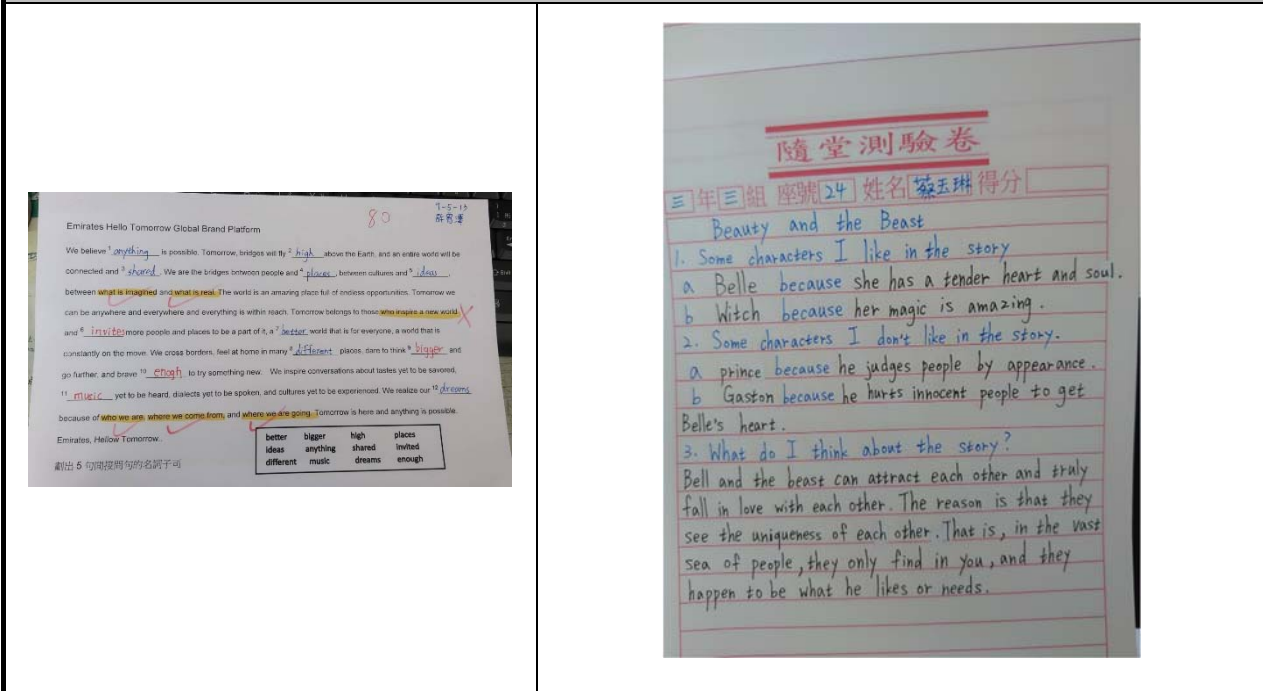 80
Emirates Hello Tomorrow Global Brand Platform
We believe 1 anything is possible. Tomorrow, bridges will fly 2 high above the Earth, and an entire world will be
connected and 3 shared. We are the bridges between people and 4 places, between cultures and 5 ideas,
between what is imagined and what is real. The world is an amazing place full of endless opportunities. Tomorrow we
can be anywhere and everywhere and everything is within reach. Tomorrow belongs to those who inspire a new world
and 6 invites more people and places to be a part of it, a 7 better world that is for everyone, a world that is
constantly on the move. We cross borders, feel at home in many 8 different places, dare to think 9 bigger and
go further, and brave 10 enogh to try something new. We inspire conversations about tastes yet to be savored,
11 music yet to be heard, dialects yet to be spoken, and cultures yet to be experienced. We realize our 12 dreams
because of who we are, where we come from, and where we are going. Tomorrow is here and anything is possible.
Emirates, Hellow Tomorrow..
better bigger high places
ideas anything shared invited
different music dreams enough
劃出 5 句間接問句的名詞子句
隨堂測驗卷
三年三組 座號 24 姓名 蔡玉琳 得分
Beauty and the Beast
1. Some characters I like in the story
a Belle because she has a tender heart and soul.
b Witch because her magic is amazing.
2. Some characters I don't like in the story.
a prince because he judges people by appearance.
b Gaston because he hurts innocent people to get
Belle's heart.
3. What do I think about the story?
Bell and the beast can attract each other and truly
fall in love with each other. The reason is that they
see the uniqueness of each other. That is, in the vast
sea of people, they only find in you, and they
happen to be what he likes or needs.